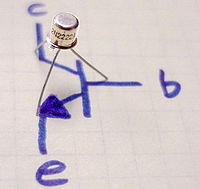 c
2N2222
b
e